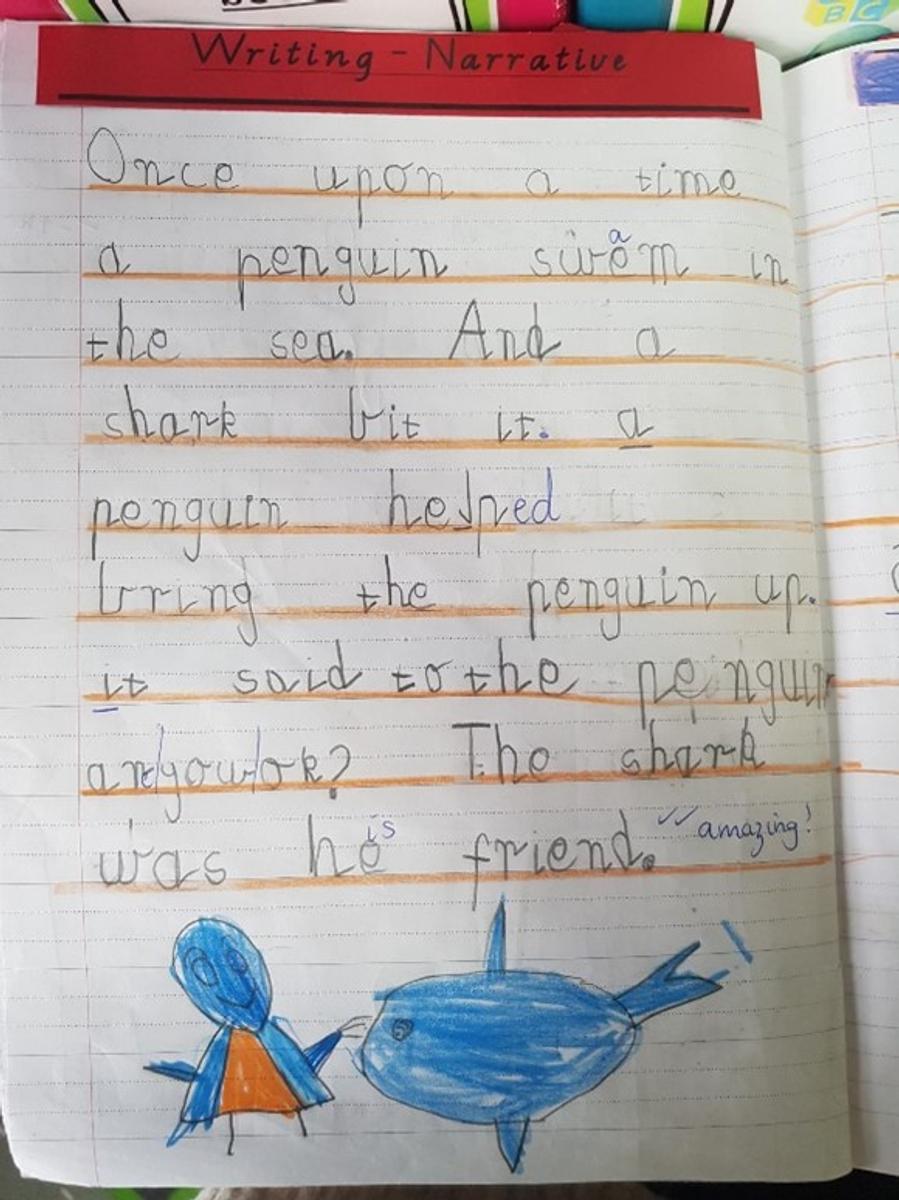 Writing - Narrative
Once upon a time
a
a penguin swom in
the sea. And a
shark bit it. a
penguin helped
bring the penguin up.
it said to the penguin
are you ok? The shark
is amazing!
was he friend.
BC